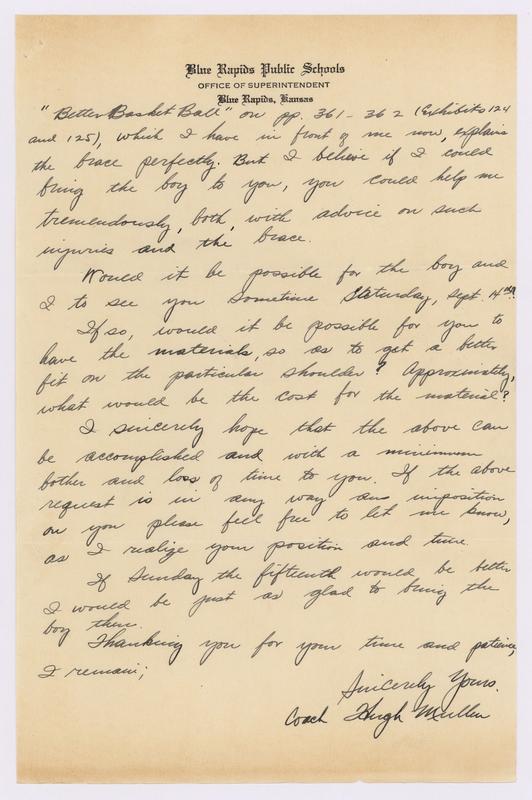 Blue Rapids Public Schools
OFFICE OF SUPERINTENDENT
Blue Rapids, Kansas
"Better Basket Ball" on pp. 361-362 (Exhibits 124
and 125), which I have in front of me now, explains
the brace perfectly. But I believe if I could
bring the boy to you, you could help me
tremendously, both, with advice on such
injuries and the brace.
Would it be possible for the boy and
I to see you sometime Saturday, Sept. 14th?
If so, would it be possible for you to
have the materials, so as to get a better
fit on the particular shoulder? Approximately,
what would be the cost for the material?
I sincerely hope that the above can
be accomplished and with a minimum
bother and loss of time to you. If the above
request is in any way an imposition
on you please feel free to let me know,
as I realize your position and time.
If Sunday the fifteenth would be better
I would be just as glad to bring the
boy then.
Thanking you for your time and patience,
I remain;
Sincerely Yours.
Coach Hugh Mullen